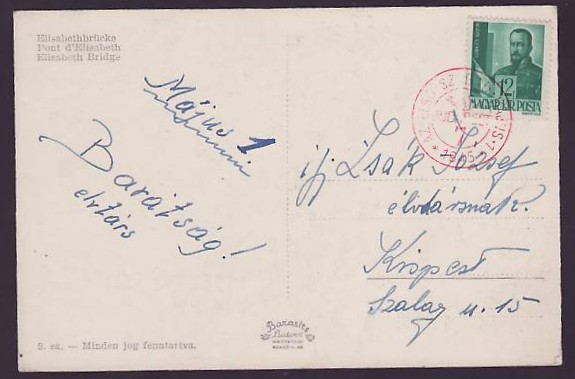 Elisabethbrücke
Pont d'Elisabeth
Elizabeth Bridge
Május 1
Barátság!
elvtárs
12
MAGYAR KIR. POSTA
AZ ELSŐ SZ
1945
ifj. Zsák József
elvtársnak.
Kispest
Szalay u. 15
Barasits
9. sz. — Minden jog fenntartva.